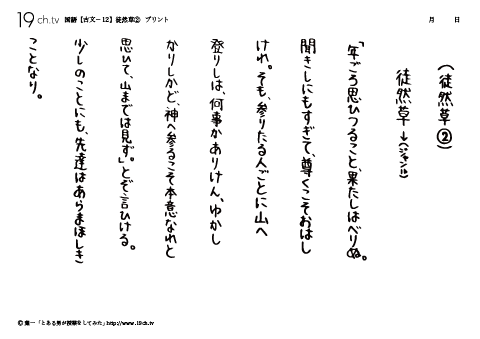 19ch.tv 国語【古文－12】徒然草② プリント
月 日
(徒然草②)
徒然草→(ジャンル)
「年ごろ思ひつること、果たしはべりぬ。
聞きしにもすぎて、尊くこそおはし
けれ。そも、参りたる人ごとに山へ
登りしは、何事かありけん、ゆかし
かりしかど、神へ参るこそ本意なれと
思ひて、山までは見ず。」とぞ言ひける。
少しのことにも、先達はあらまほしき
ことなり。
©葉一「とある男が授業をしてみた」http://www.19ch.tv